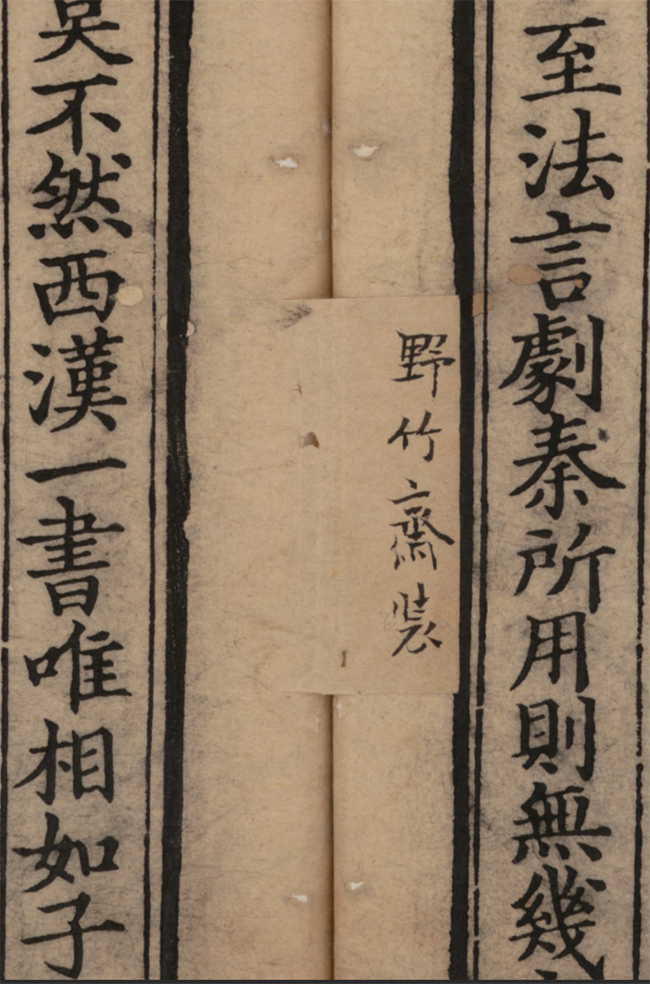 至法言劇秦所用則無幾
野竹齋裝
吴不然西漢一書唯相如子